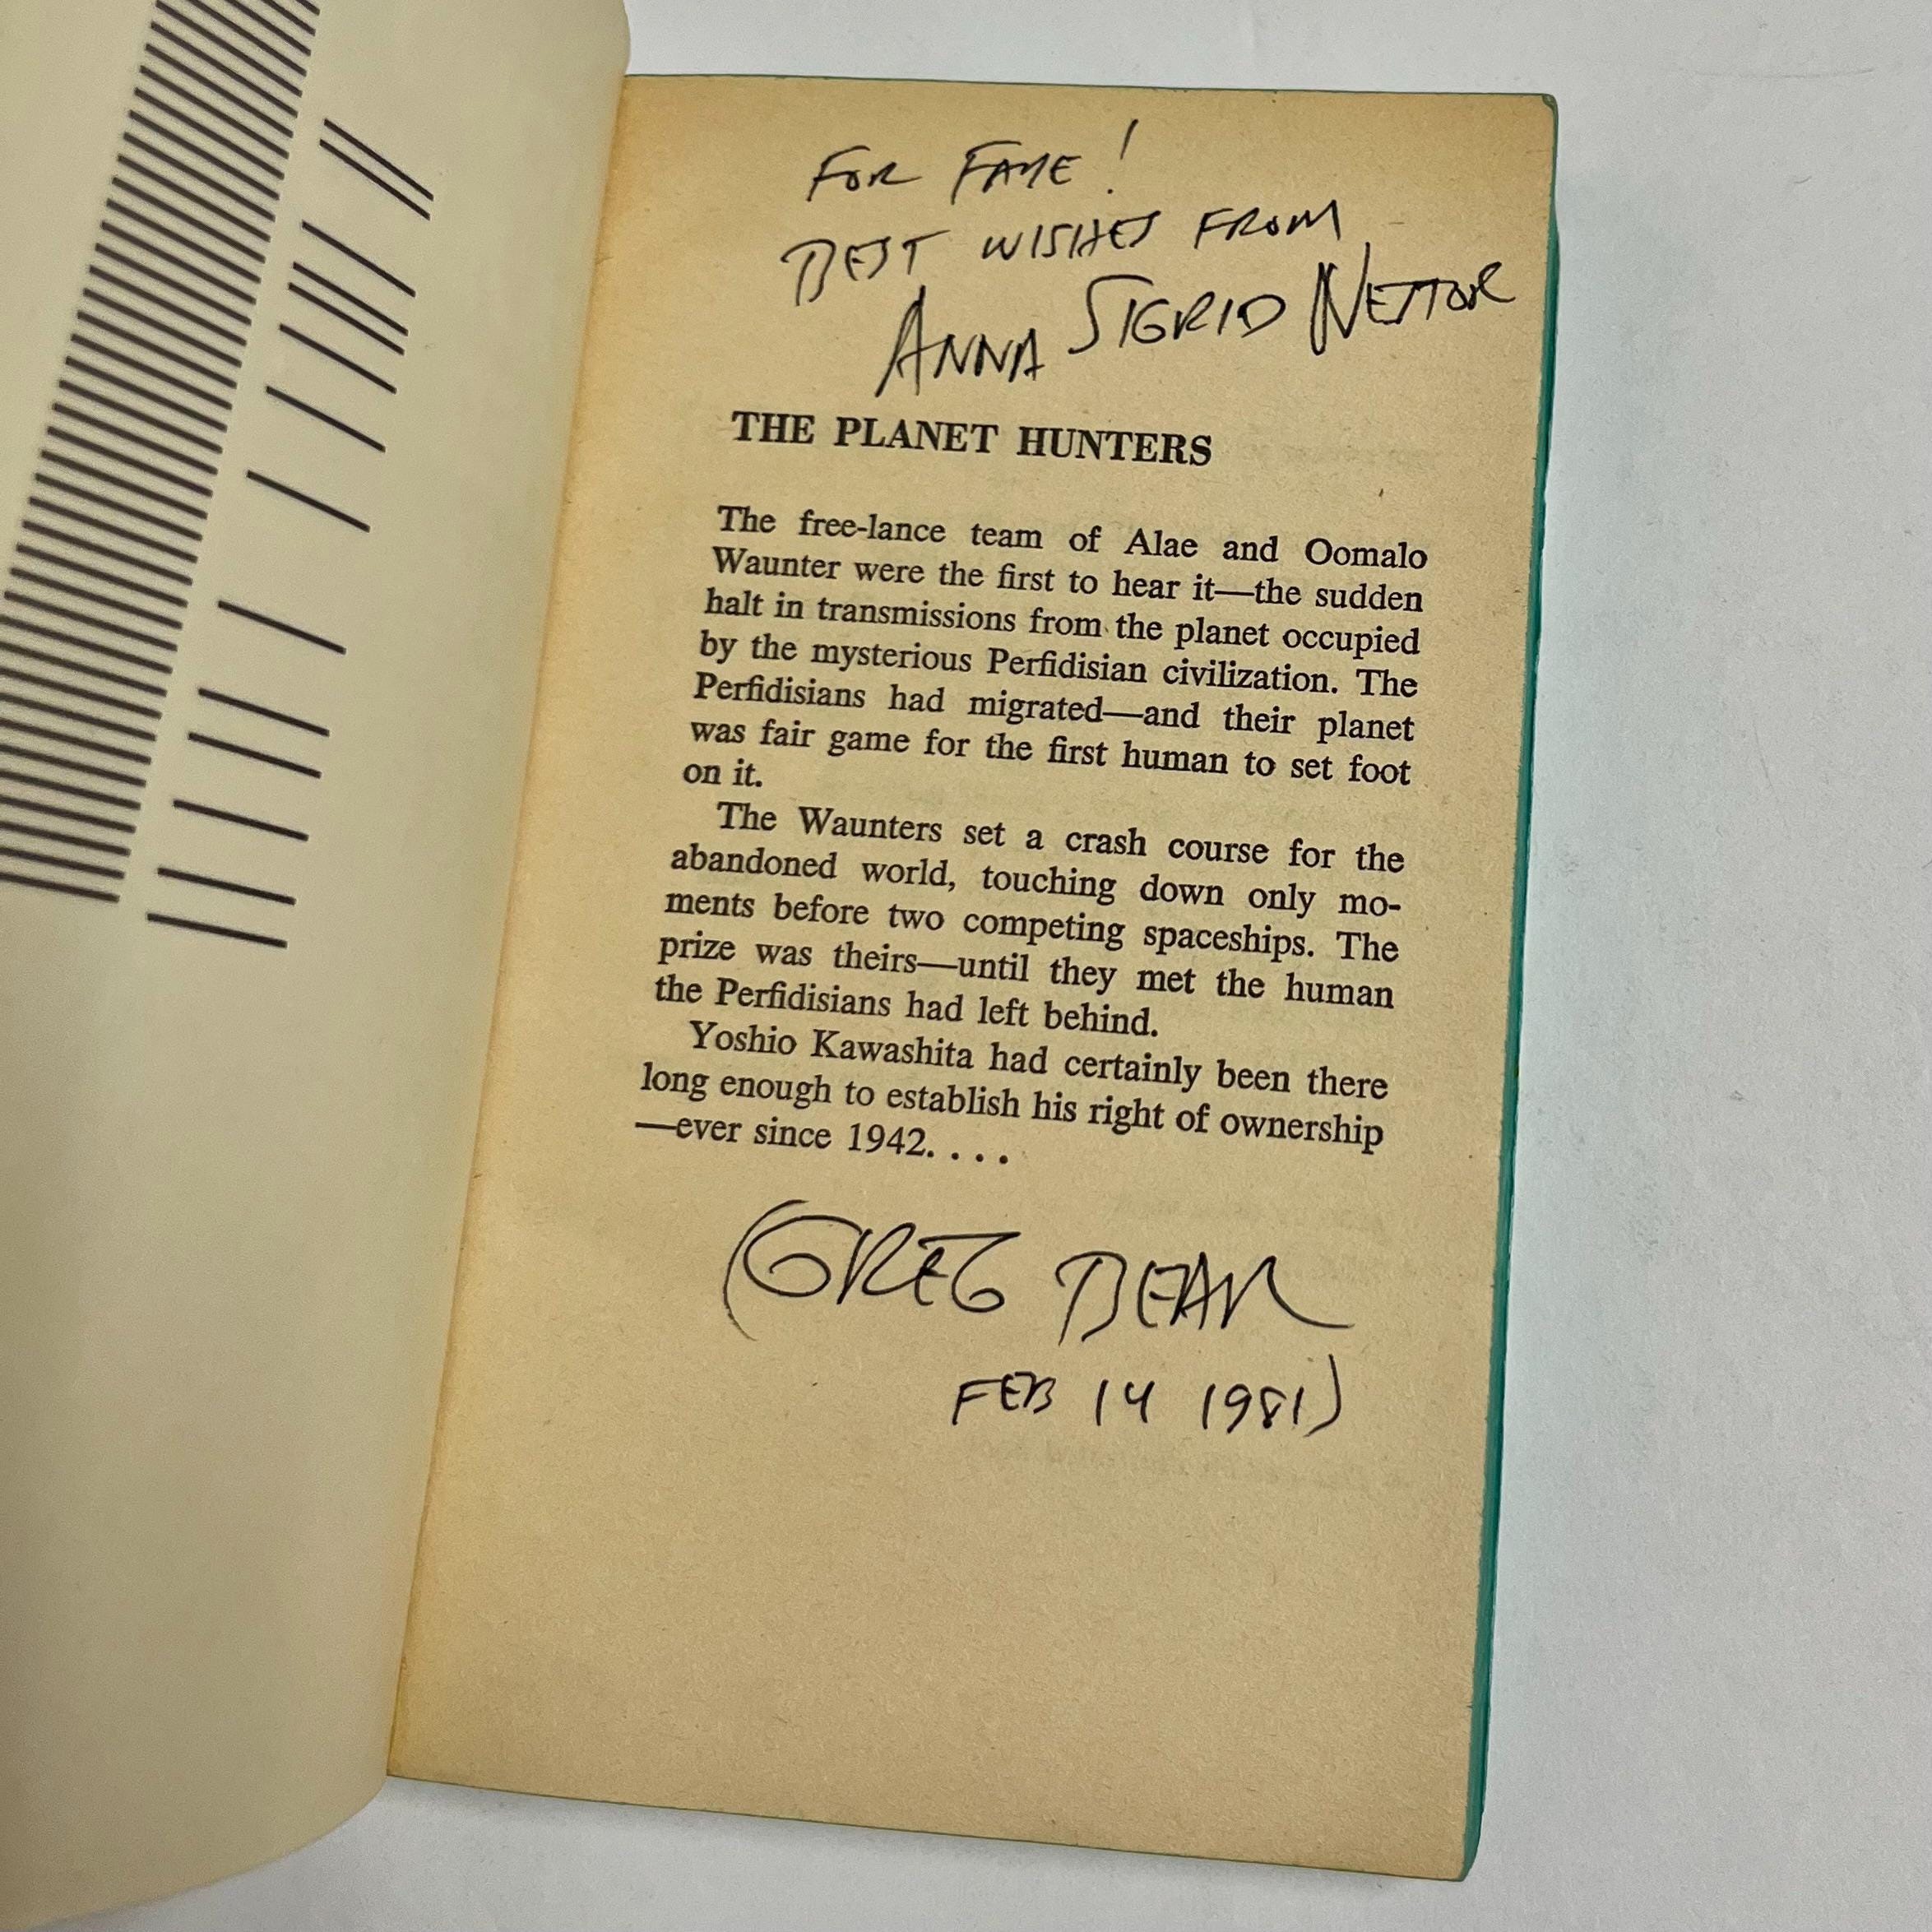 FOR FAYE!
BEST WISHES FROM
ANNA SIGRID NESTOR
THE PLANET HUNTERS
The free-lance team of Alae and Oomalo
Waunter were the first to hear it—the sudden
halt in transmissions from the planet occupied
by the mysterious Perfidisian civilization. The
Perfidisians had migrated—and their planet
was fair game for the first human to set foot
on it.
The Waunters set a crash course for the
abandoned world, touching down only mo-
ments before two competing spaceships. The
prize was theirs—until they met the human
the Perfidisians had left behind.
Yoshio Kawashita had certainly been there
long enough to establish his right of ownership
—ever since 1942. . . .
(GREG BEAR
FEB 14 1981)